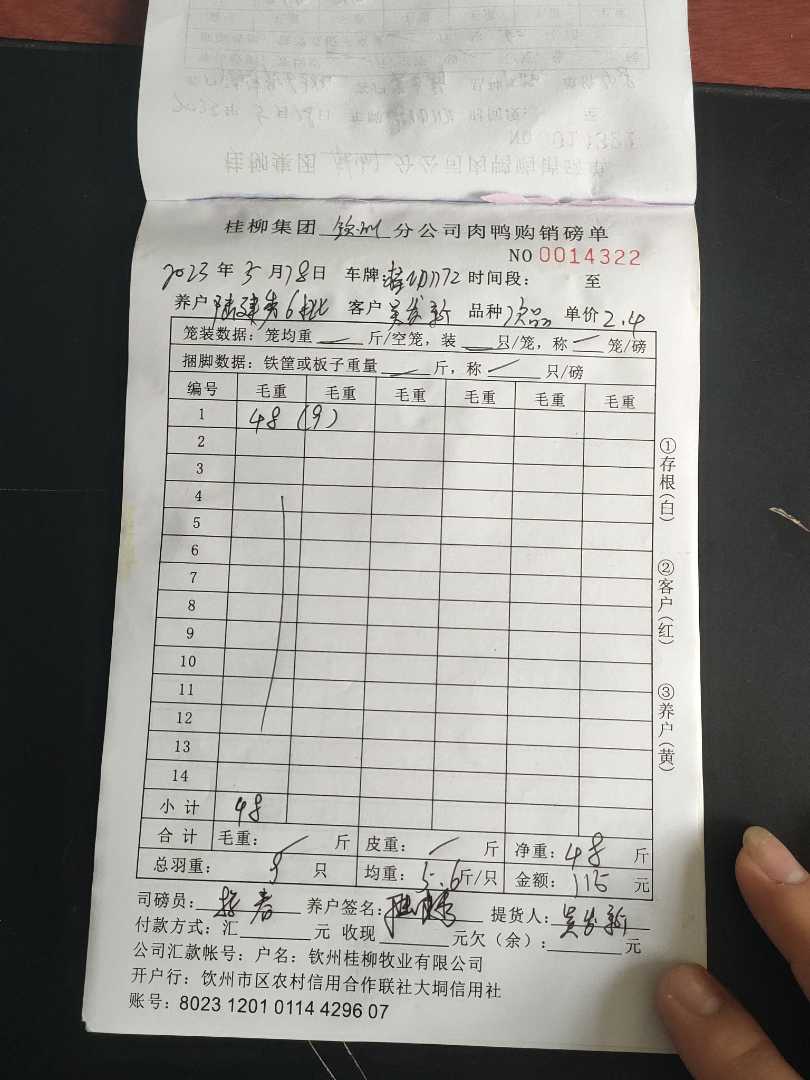 桂柳集团 钦州 分公司肉鸭购销磅单
NO 0014322
2023 年 5 月 18 日 车牌: 时间段: 至
养户 6批 客户 吴发新 品种 次品 单价 2.4
笼装数据: 笼均重 斤/空笼, 装 只/笼, 称 笼/磅
捆脚数据: 铁筐或板子重量 斤, 称 只/磅
编号 毛重 毛重 毛重 毛重 毛重 毛重
1 48 (9)
2
3
4
5
6
7
8
9
10
11
12
13
14
小 计 48
合 计 毛重: 斤 皮重: 斤 净重: 48 斤
总羽重: 只 均重: 5.6 斤/只 金额: 115 元
司磅员: 养户签名: 提货人: 吴发新
付款方式: 汇 元 收现 元欠(余): 元
公司汇款帐号: 户名: 钦州桂柳牧业有限公司
开户行: 饮州市区农村信用合作联社大垌信用社
账号: 8023 1201 0114 4296 07
①存根(白)
②客户(红)
③养户(黄)